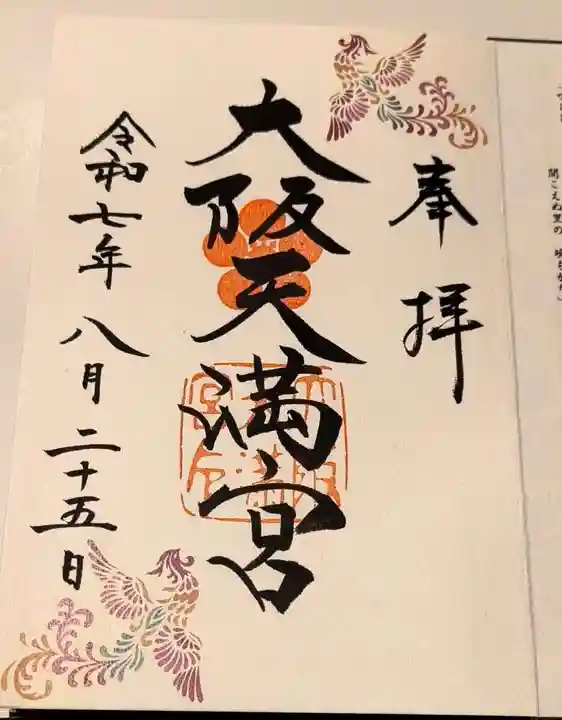 奉拝
大阪天満宮
令和七年八月二十五日
聞こえぬ里の